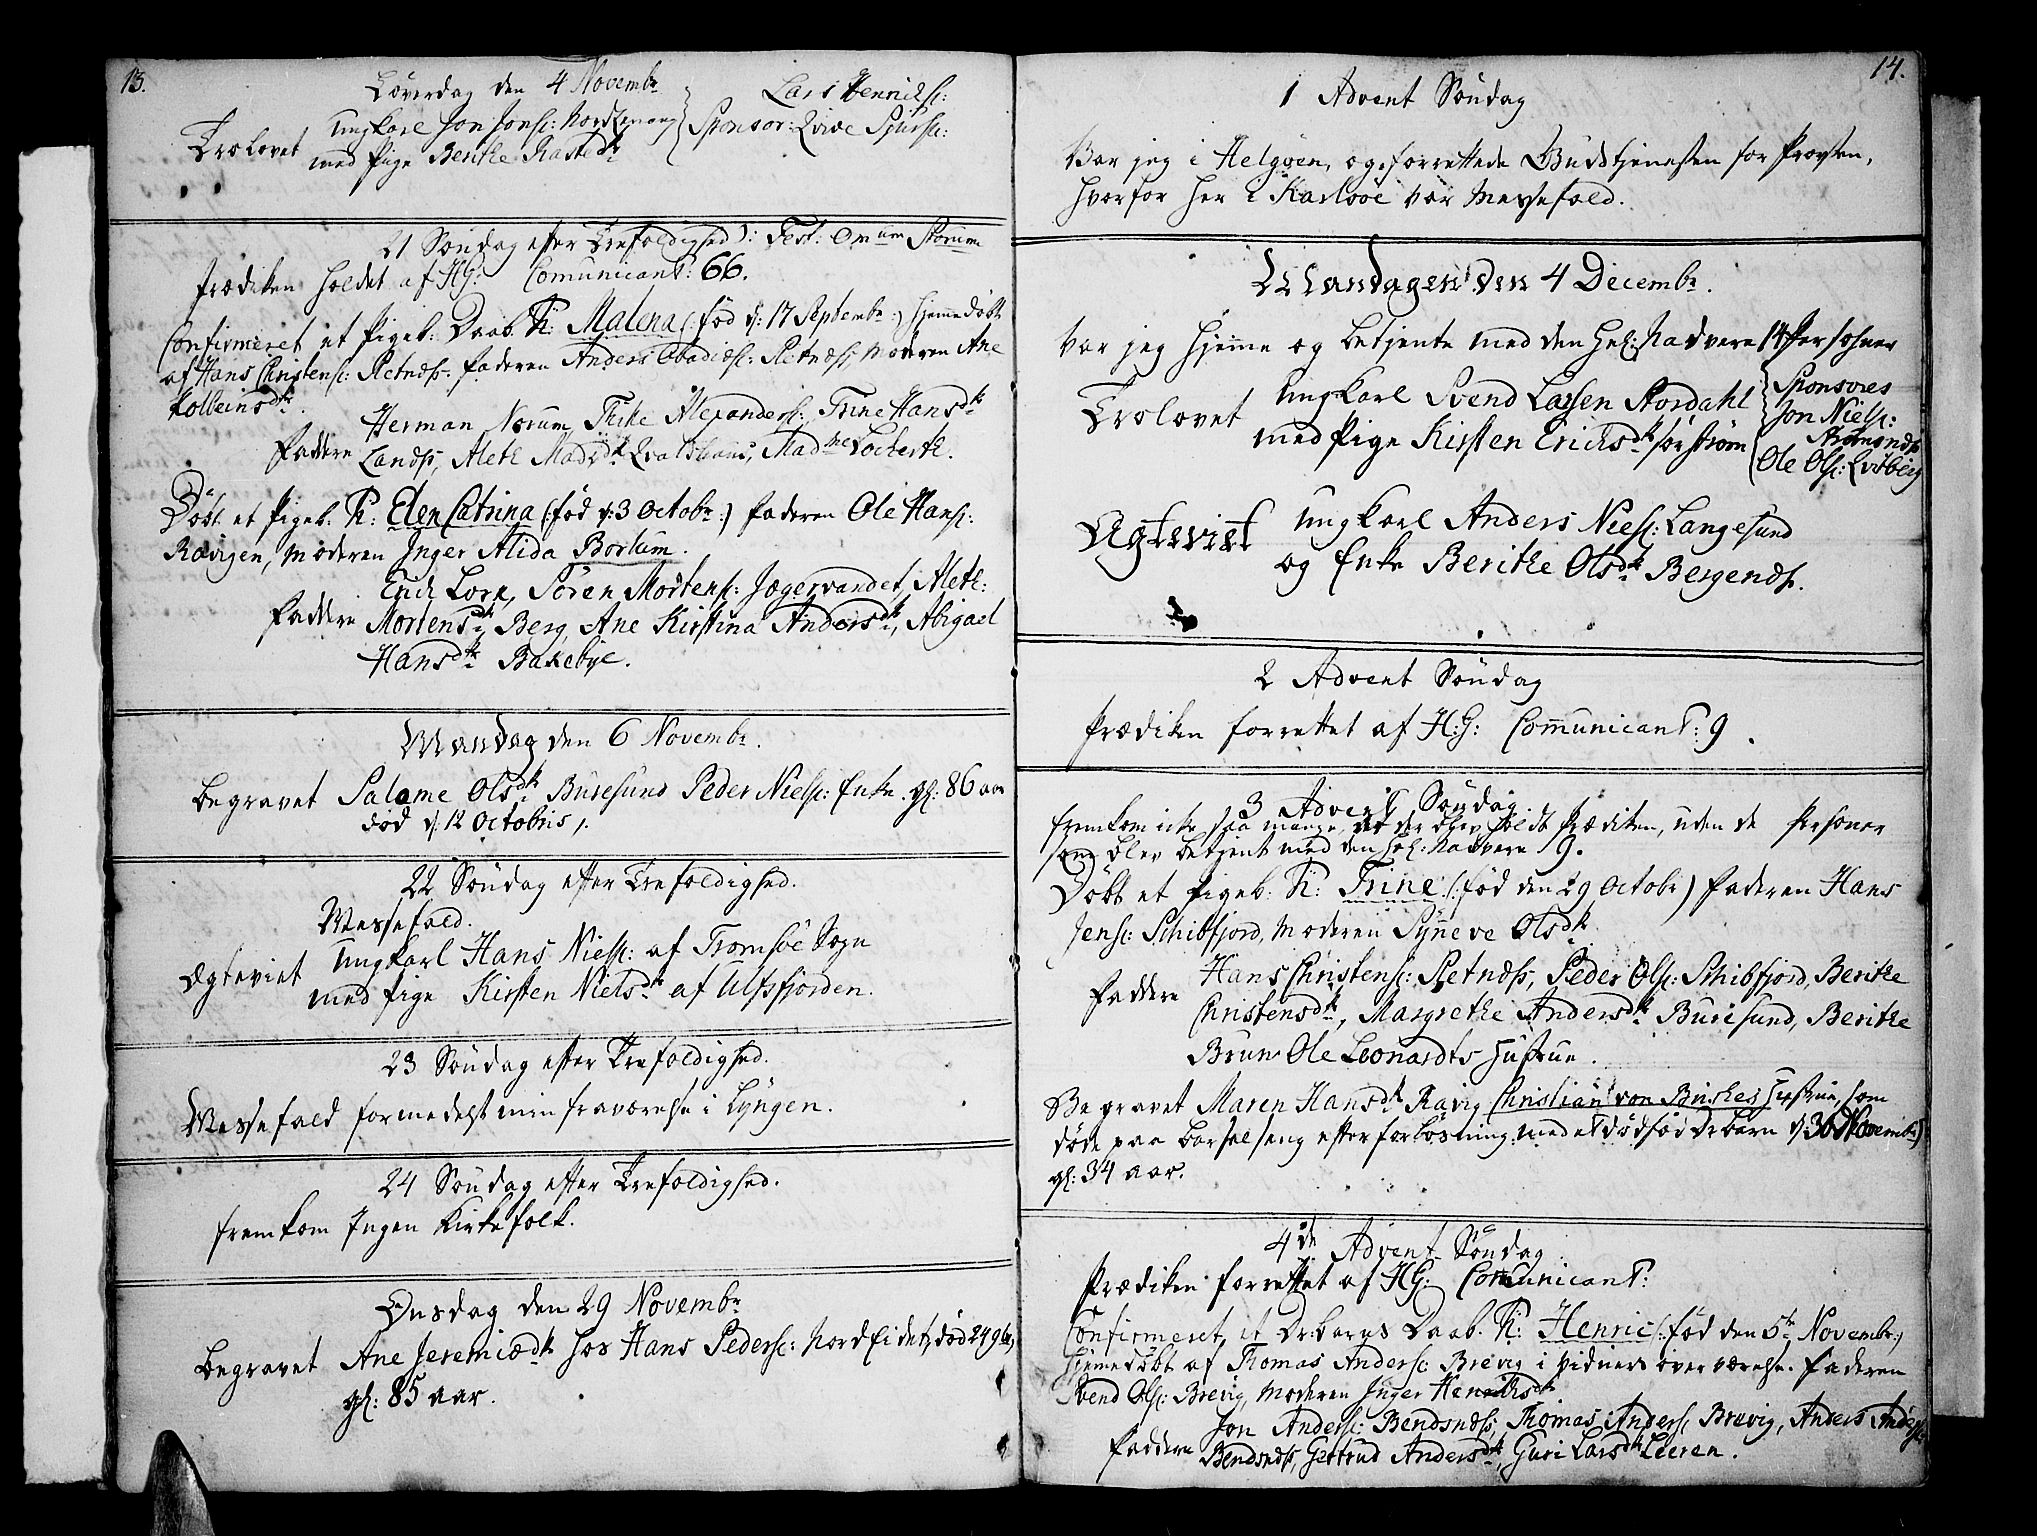 13.
Løverdag den 4 Novembr
Trolovet Ungkarl Jon Jons: Nordtzmang
med Pige Berithe Rastedr
Lars Henrichs:
Sponsor:
21 Søndag efter Trefoldighed): Fest: Omium Storum
Prædiken holdet af HG: Comunicant: 66.
Confirmeret et Pigeb: Daab. K: Malena (: fød d: 17 Septembr :) Hiemedøbt
af Hans Christens: Retnæss. Faderen Anders Obadies: Retnæss, Moderen Ane
Kolbeinsdtr.
Faddere Herman Norum, Terke Alexanders:, Trine Hansdtr
Landss, Aleth Madsdtr Qvalshaus, Madme Lockerth.
Døbt et Pigeb. K: Elen Catrina (: fød d: 3 Octobr :) Faderen Ole Hans:
Ravigen, Moderen Inger Alida Borlum.
Erich Lorx, Søren Mortens: Jægervandet, Aleth:
Faddere Mortensdtr Berg, Ane Kirstina Andersdtr, Abigael
Hansdtr Bakebye.
Mandag den 6 Novembr.
Begravet Salame Olsdtr Buresund Peder Niels: Enke. gl: 86 aar
død d: 12 Octobris,.
22 Søndag efter Trefoldighed.
Messefald.
Ægteviet Ungkarl Hans Niels: af Tromsøe Sogn
med Pige Kirsten Nielsdtr af Ulfsfjorden.
23 Søndag efter Trefoldighed.
Messefald formedelst min fraværelse i Lyngen.
24 Søndag efter Trefoldighed.
Fremkom Ingen Kirkefolk.
Onsdag den 29 Novembr
Begravet Ane Jeremiædtr hos Hans Peders: Nordeidet, død 24 9br,
gl: 85 aar.
14.
1 Advent Søndag
Var jeg i Helgøen, og forrettede Gudstjenesten for Provsten,
hvorfor her i Karlsöe var Messefald.
Mandagen den 4 Decembr.
Var jeg hjemme og betjente med den Hel: Nadvere 14 Persohner
Trolovet Ungkarl Svend Lassen Stordahl
med Pige Kirsten Erichsdtr Sørstrøm
Sponsores
Jon Niels:
Ole Ols:
Ægteviet Ungkarl Anders Niels: Langesund
og Enke Berithe Olsdtr Bergenæss.
2 Advent Søndag
Prædiken forrettet af H:G: Communicant: 9.
3 Advent Søndag.
Fremkom icke saa mange, at der blev holdt Prædiken, uden de Personer
som blev betjent med den Hel: Nadvere 9.
Døbt et Pigeb: K: Trine (: fød den 29 Octobr) Faderen Hans
Jens: Schibsfjord, Moderen Syneve Olsdtr.
Faddere Hans Christens: Retnæss, Peder Ols: Schibsfjord, Berithe
Christensdtr, Margrethe Andersdtr Buresund, Berithe
Brun Ole Leonardts Hustrue.
Begravet Maren Hansdtr Ravig Christian von Buskes Hustrue, som
døde paa barselseng efter forløsning med et dødfødde barn d: 30 Novembr)
gl: 34 aar.
4de Advent Søndag
Prædiken forrettet af HG: Comunicant:
Confirmeret et Dr:barns Daab. K: Henric (: fød den 5te Novembr:)
Hjemedøbt af Thomas Anders: Brevig i Vidners overværelse. Faderen
Svend Ols: Brevig, Moderen Inger Henrichsdtr
Jon Anders: Bendsnæss, Thomas Anders: Brevig, Anders Anders:
Faddere Bendsnæss, Gertrud Andersdtr, Guri Larsdtr Leeren.